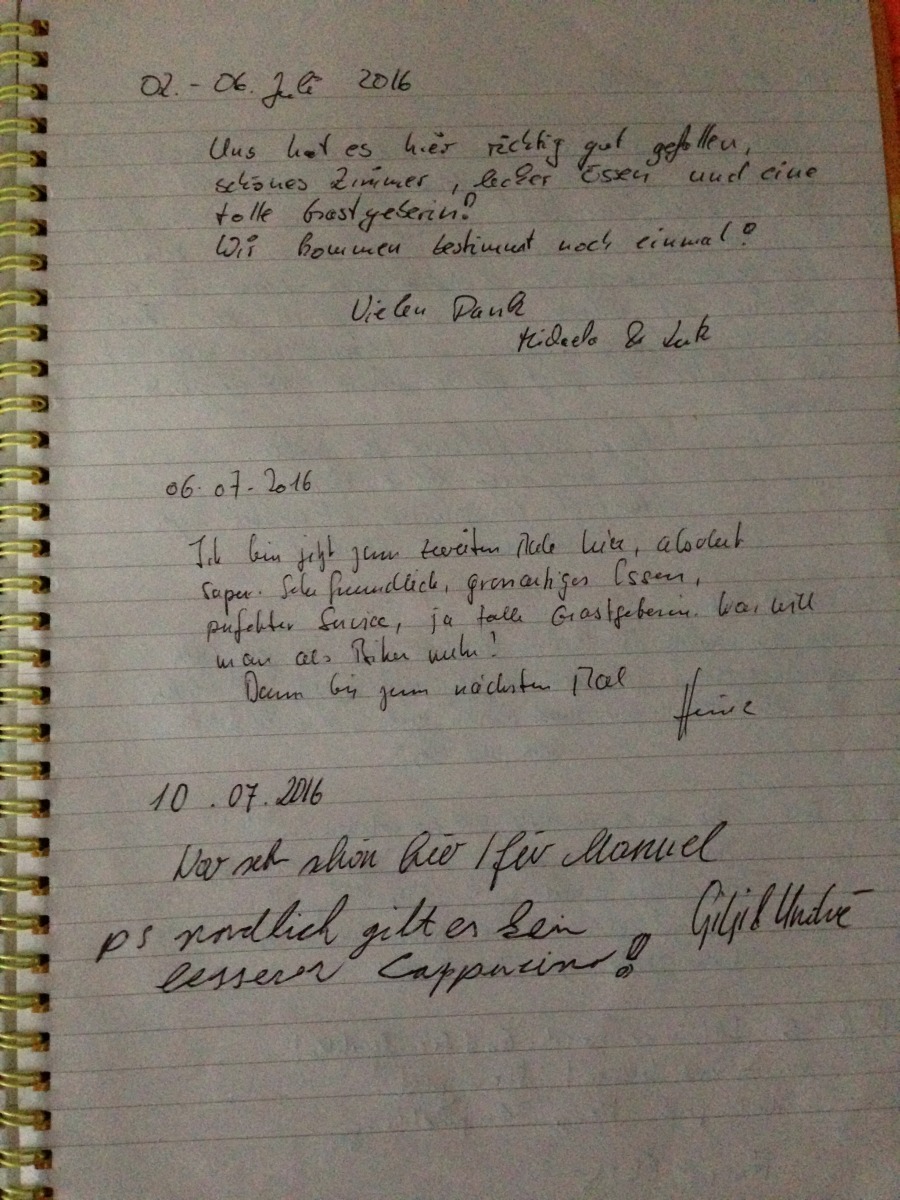 02. - 06. Juli 2016
Uns hat es hier richtig gut gefallen,
schönes Zimmer, lecker Essen und eine
tolle Gastgeberin!
Wir kommen bestimmt noch einmal!
Vielen Dank
Michaela & Lutz
06.07-2016
Ich bin jetzt zum zweiten Male hier, absolut
super. Sehr freundlich, grossartiges Essen,
perfekter Service, ja tolle Gastgeberin. Was will
man als Biker mehr!
Dann bis zum nächsten Mal
10.07.2016
War seh schön hier / für Manuel
ps nordlich gilt es kein
besserer Cappucino!